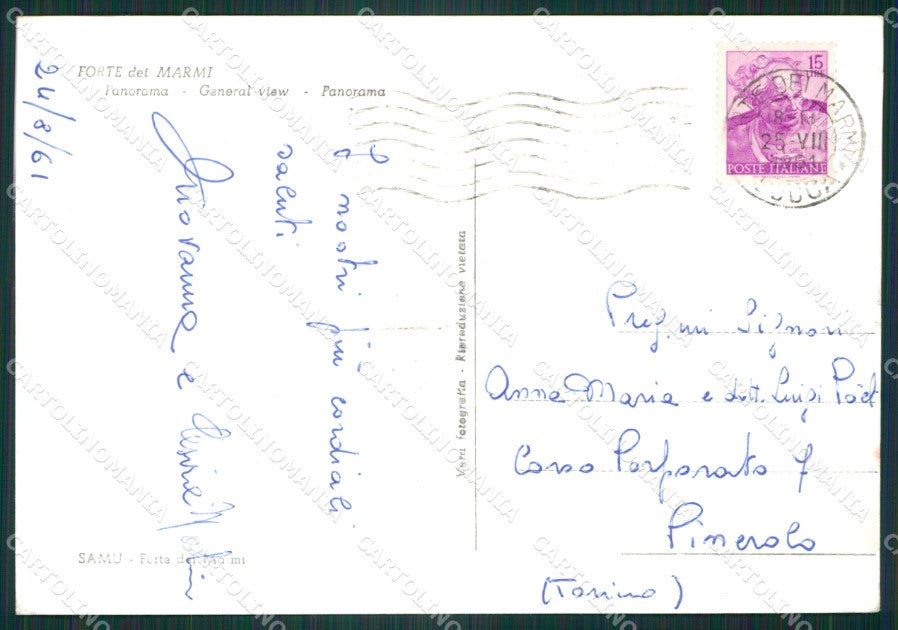 FORTE dei MARMI
Panorama - General view - Panorama
24/8/61
I nostri più cordiali
saluti
Giovanna e
SAMU - Forte dei Marmi
Vera fotografia - Riproduzione vietata
15
LIRE
POSTE ITALIANE
FORTE DEI MARMI
25-VIII
1961
LUCCA
Preg.mi Signori
Anna Maria e dott. Luigi Paèt
Corso Porporato 7
Pinerolo
(Torino)
CARTOLINOMANIA